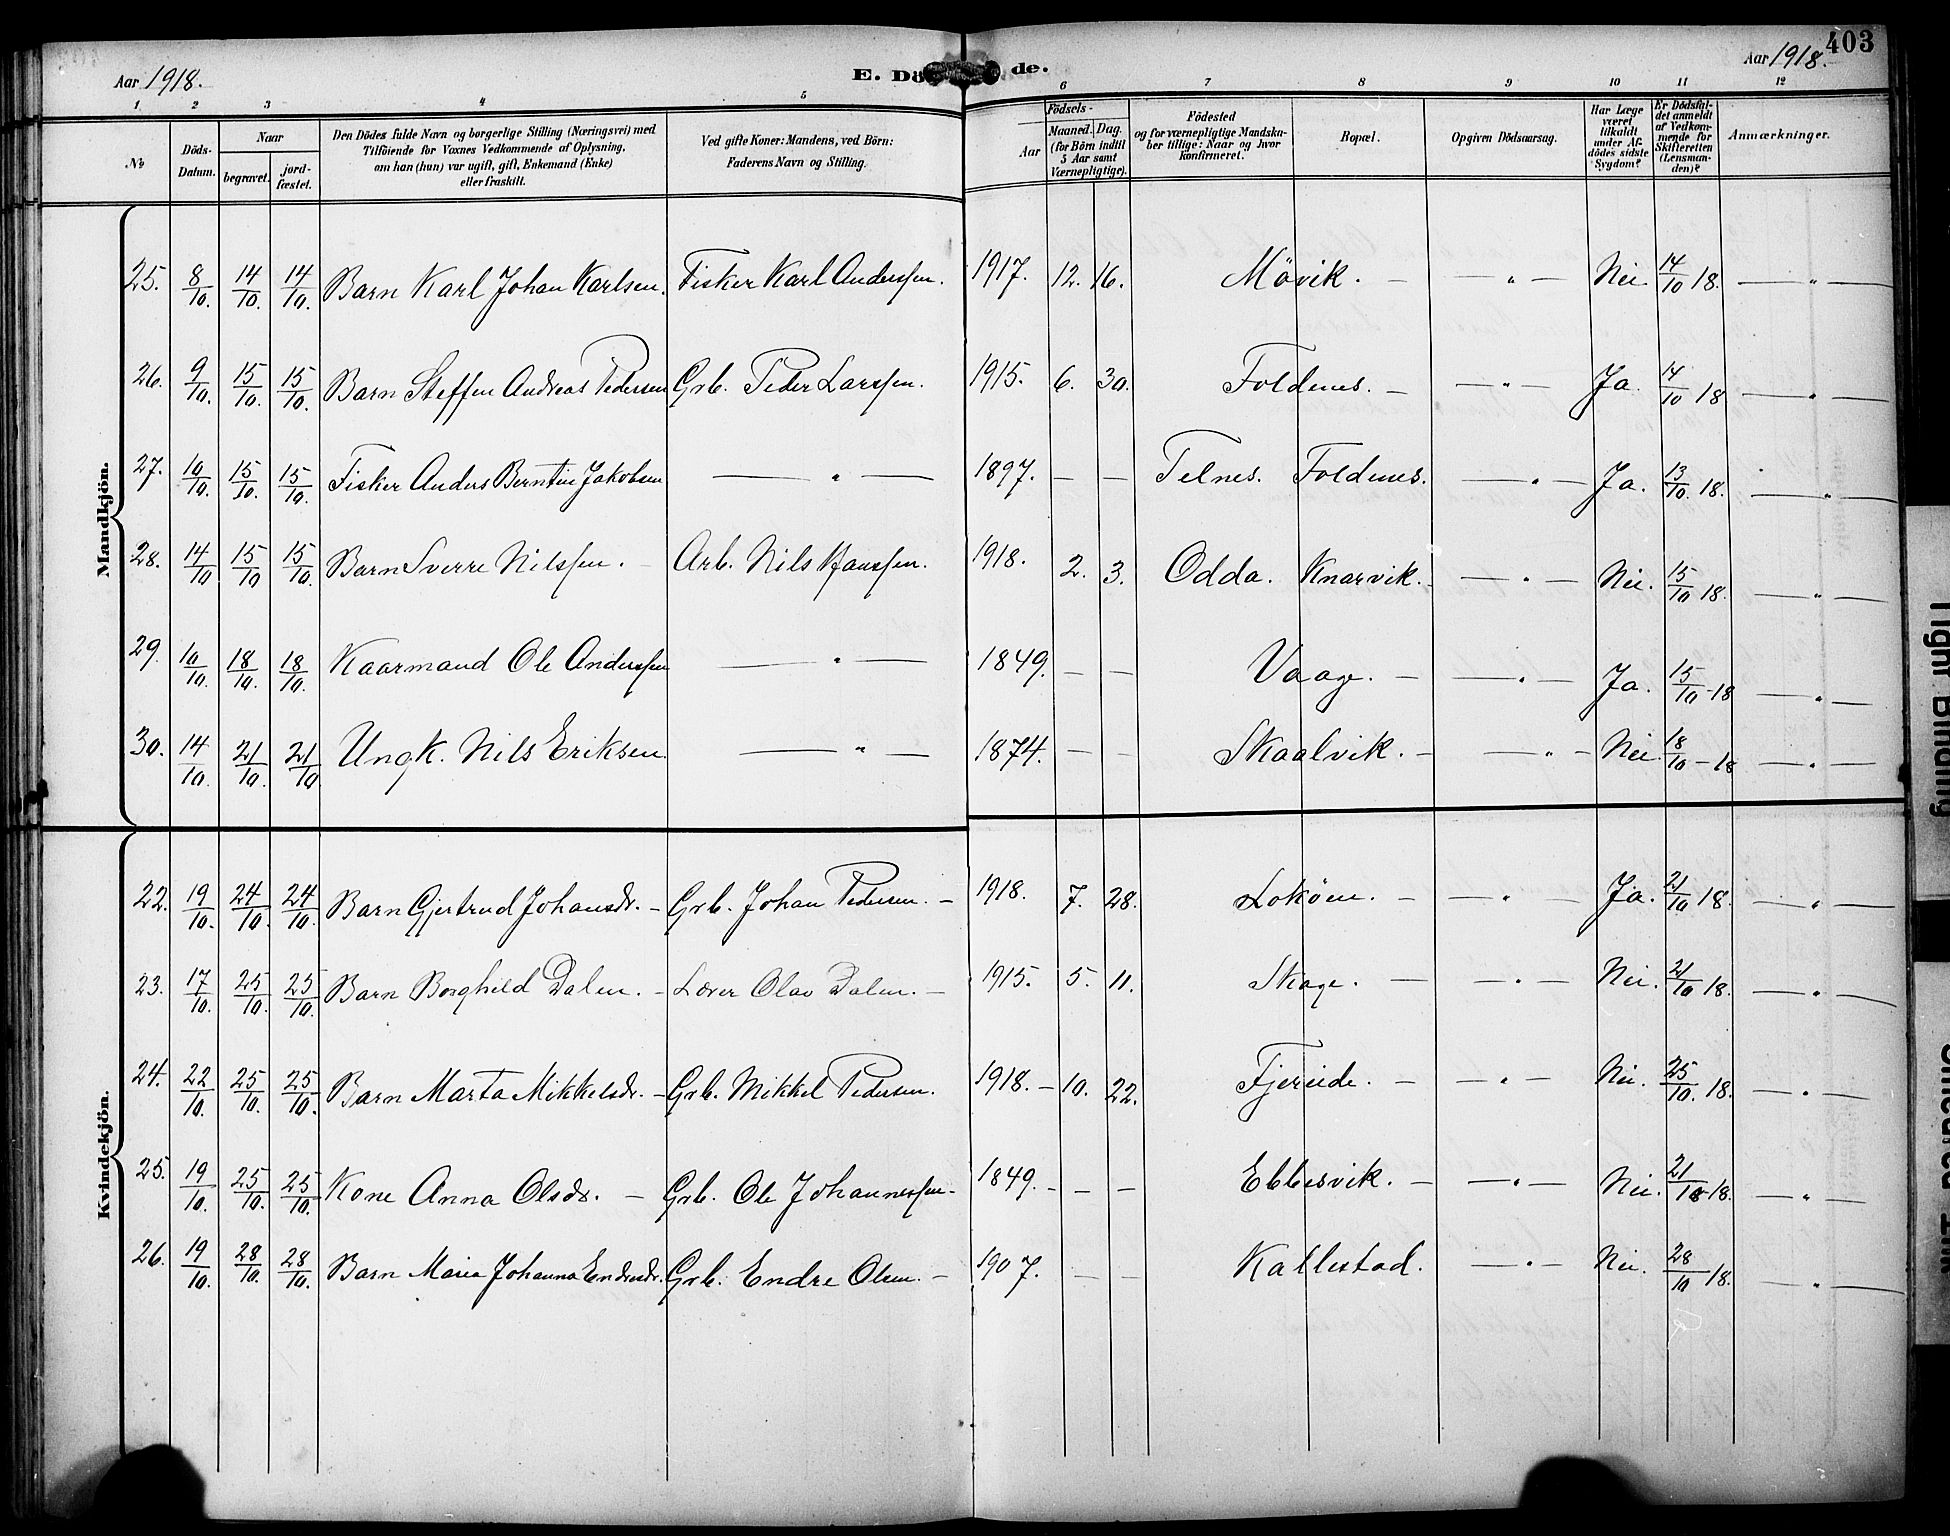 403
Aar 1918. E. Dö de. Aar 1918.
1 2 3 4 5 6 7 8 9 10 11 12
No
Döds-Datum.
Naar
begravet.
jord-fæstet.
Den Dödes fulde Navn og borgerlige Stilling (Næringsvei) med
Tilföiende for Voxnes Vedkommende af Oplysning,
om han (hun) var ugift, gift, Enkemand (Enke)
eller fraskilt.
Ved gifte Koner: Mandens, ved Börn:
Faderens Navn og Stilling.
Födsels-
Aar
Maaned. Dag.
(for Börn indtil
5 Aar samt
Værnepligtige).
Födested
og for værnepligtige Mandska-
ber tillige: Naar og hvor
konfirmeret.
Bopæl.
Opgiven Dödsaarsag.
Har Læge
været
tilkaldt
under Af-
dödes sidste
Sygdom?
Er Dödsfal-
det anmeldt
af Vedkom-
mende for
Skifteretten
(Lensman-
den)?
Anmærkninger.
Mandkjön.
25. 8/10. 14/10. 14/10. Barn Karl Johan Karlsen. Fisker Karl Anderssen. 1917. 12. 16. Mövik. — — " — Nei. 14/10 18. — " —
26. 9/10. 15/10. 15/10. Barn Steffen Andreas Pedersen Grb. Peder Larssen. 1915. 6. 30. Foldenes. — — " — Ja. 14/10 18 — " —
27. 10/10. 15/10. 15/10. Fisker Anders Berntin Jakobsen — " — 1897. — — Telnes. Foldenes. — " — Ja. 13/10. 18. — " —
28. 14/10 15/10 15/10. Barn Sverre Nilssen. — Arb. Nils Hanssen. 1918. 2. 3. Odda. Knarvik. — " — Nei. 15/10 18. — " —
29. 10/10. 18/10. 18/10. Kaarmand Ole Anderssen — " — 1849. — — Vaage. — — " — Ja. 15/10-18 — " —
30. 14/10. 21/10. 21/10 Ungk. Nils Eriksen. — " — 1874. — — Skaalvik. — — " — Nei. 18/10-18 — " —
Kvindekjön.
22. 19/10. 24/10. 24/10. Barn Gjertrud Johansdr. — Grb. Johan Pedersen. — 1918. 7. 28. Loköen. — — " — Ja. 21/10 18. — " —
23. 17/10. 25/10. 25/10. Barn Borghild Dalen. — Lærer Olav Dalen. — 1915. 5. 11. Skage. — — " — Nei. 21/10 18. — " —
24. 22/10. 25/10. 25/10. Barn Marta Mikkelsdr. — Grb. Mikkel Pedersen. 1918. — 10. 22. Fjereide. — — " — Nei. 25/10. 18. — " —
25. 19/10. 25/10. 25/10. Kone Anna Olsdr. — Grb. Ole Johannessen — 1849. — — — Ebbesvik. — — " — Nei. 21/10-18. — " —
26. 19/10. 28/10. 28/10. Barn Maria Johanna Endresdr. Grb. Endre Olsen. — 1907. — — Kallestad. — " — Nei. 28/10 18. — " —
Tight Binding